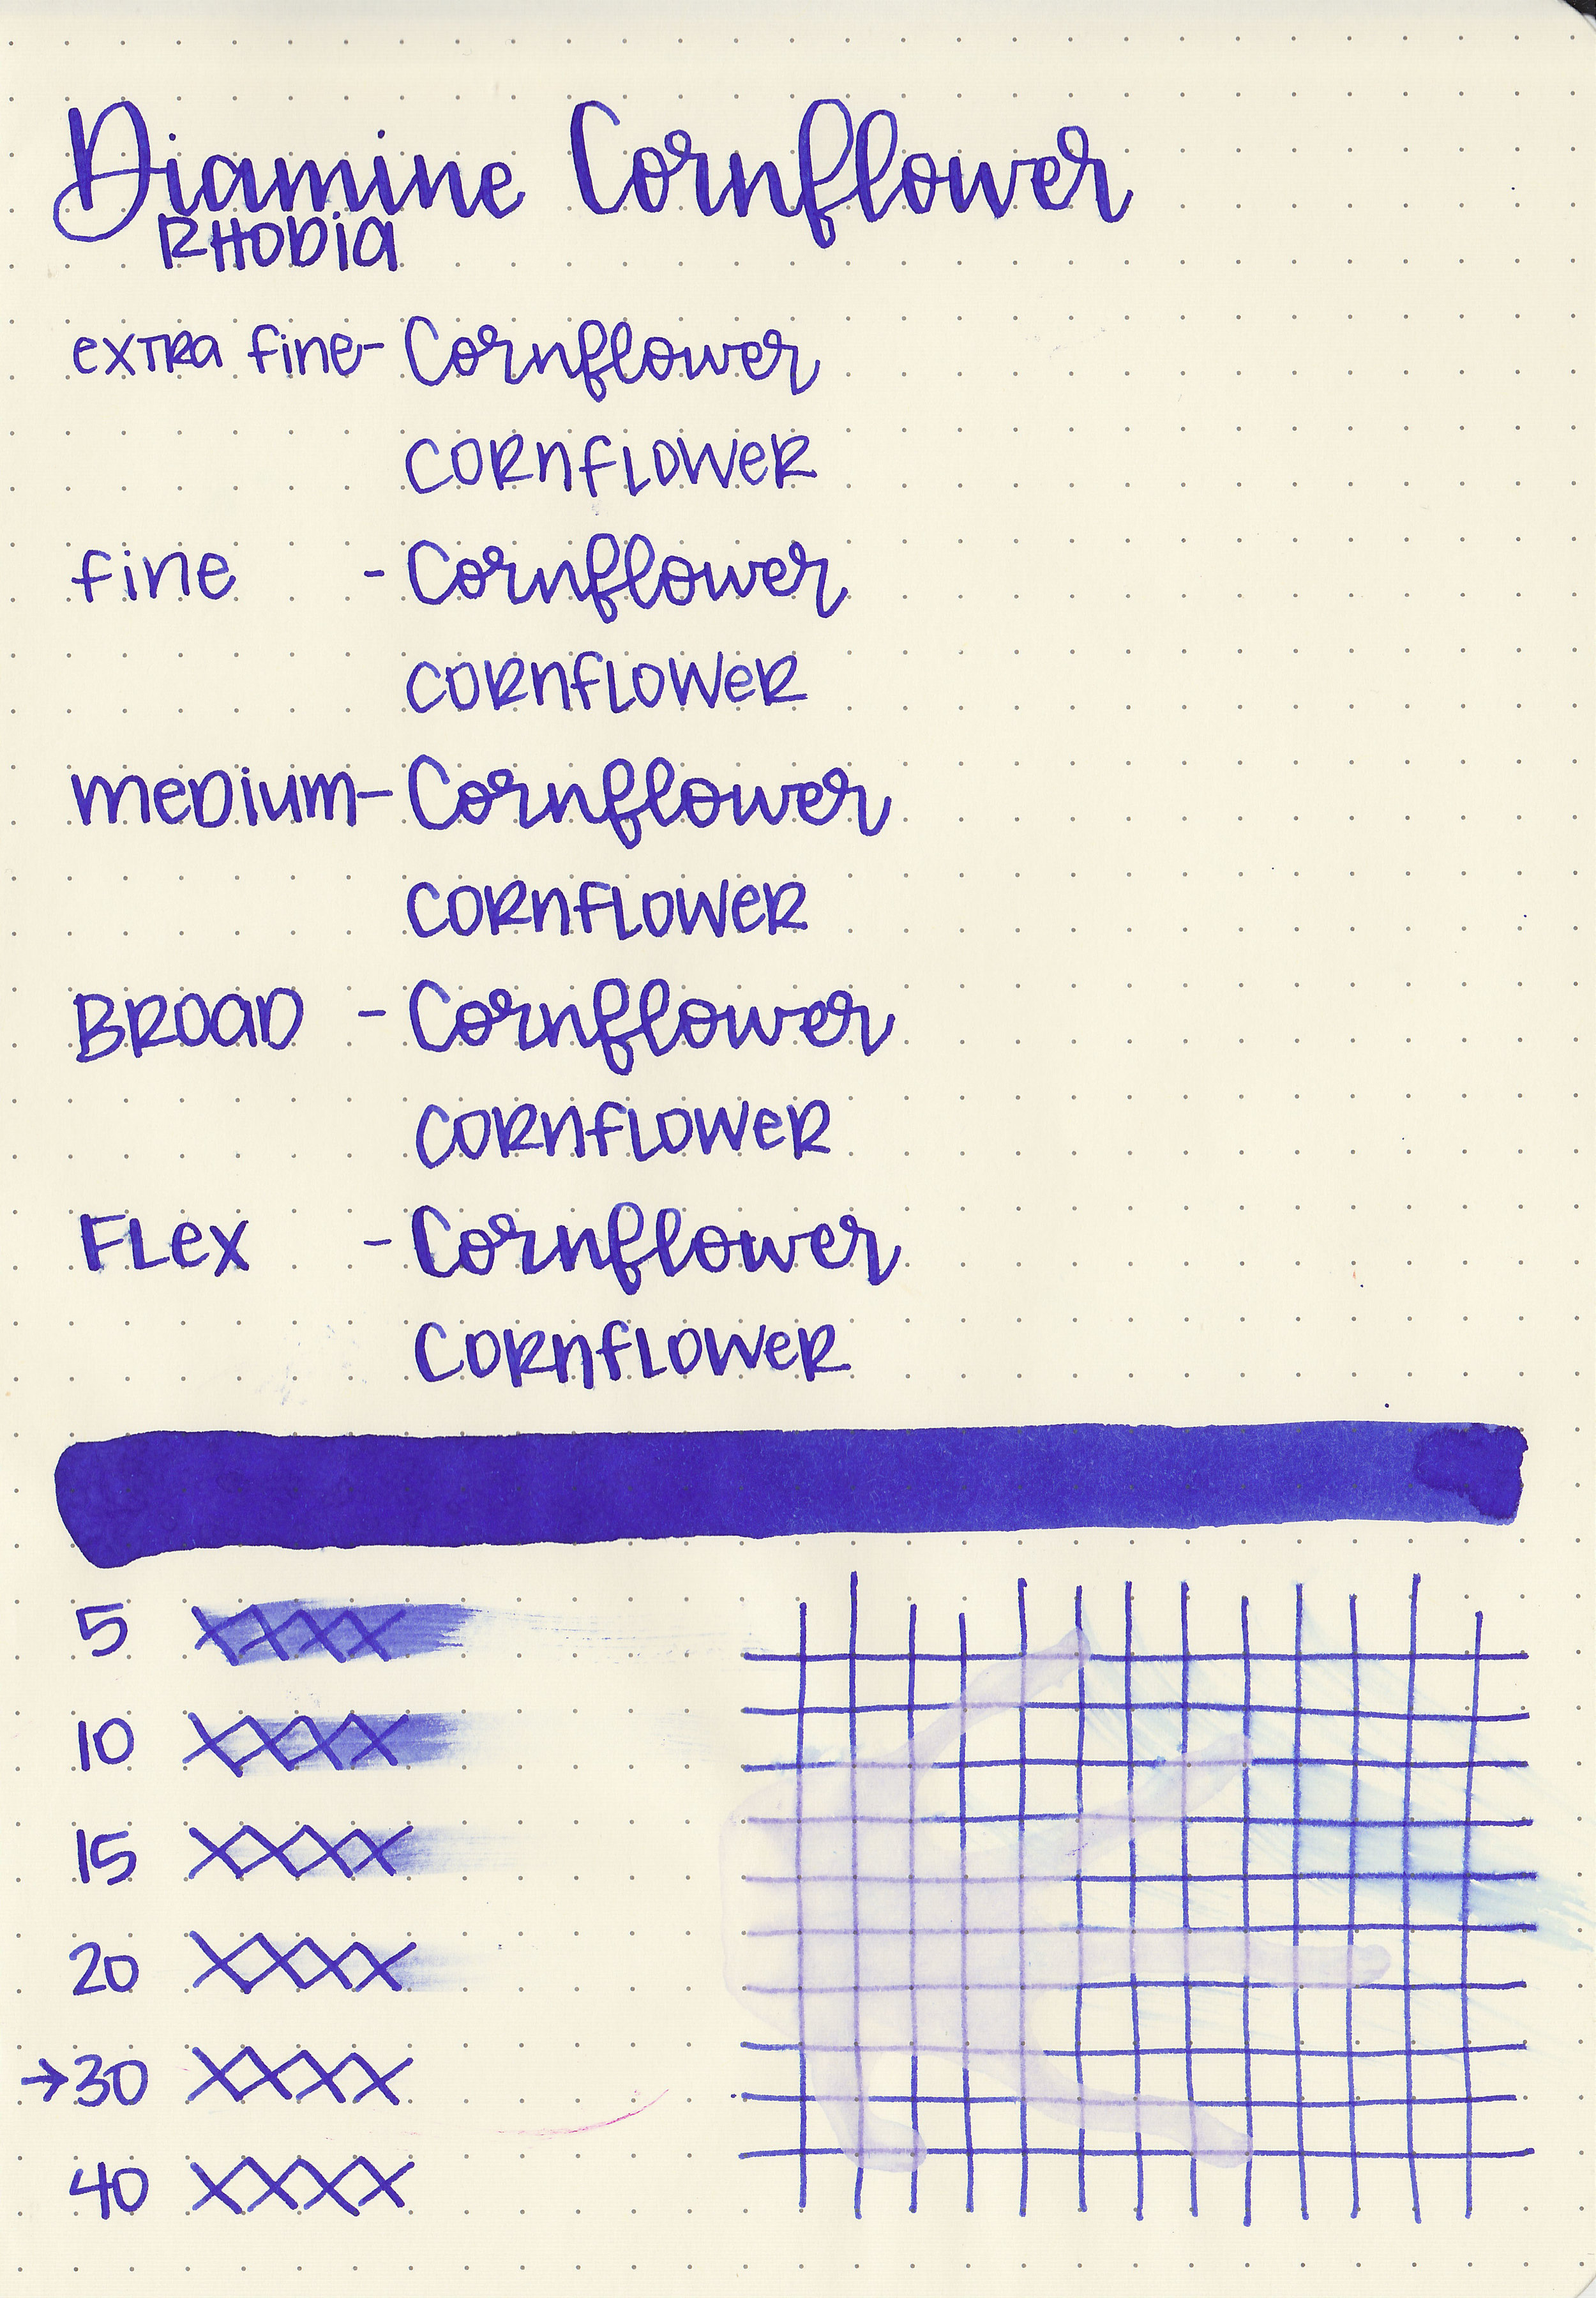 Diamine Cornflower
RHODia
exTRa fine- Cornflower
CORnfLOWeR
fine - Cornflower
CORnfLOWeR
meDium- Cornflower
CORnFLOWeR
BROaD - Cornflower
CORnfLOWeR
FLex - Cornflower
CORnfLOWeR
5 XXXX
10 XXXX
15 XXXX
20 XXXX
→30 XXXX
40 XXXX